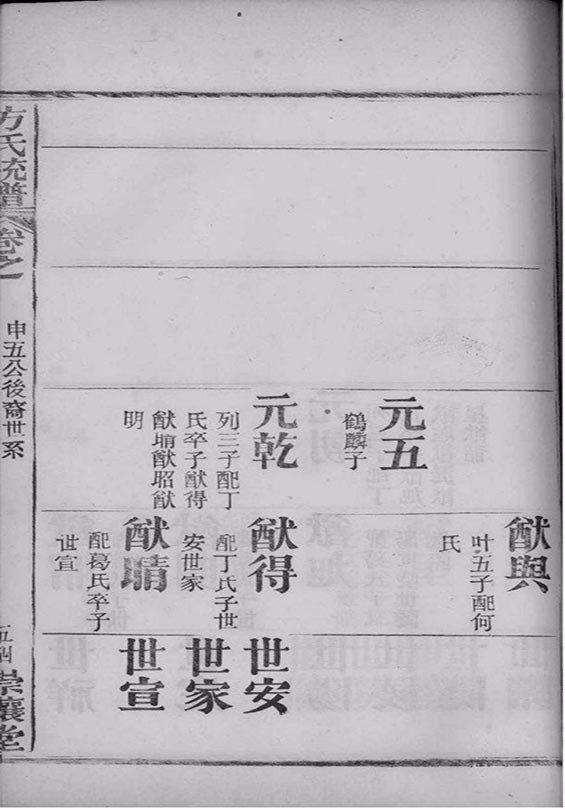 元五
鶴麟子
元乾
列三子配丁
氏卒子猷得
猷晴猷昭猷
明
猷與
叶五子配何
氏
猷得
配丁氏子世
安世家
猷晴
配葛氏卒子
世宣
世安
世家
世宣
方氏統譜
卷之
申五公後裔世系
崇讓堂